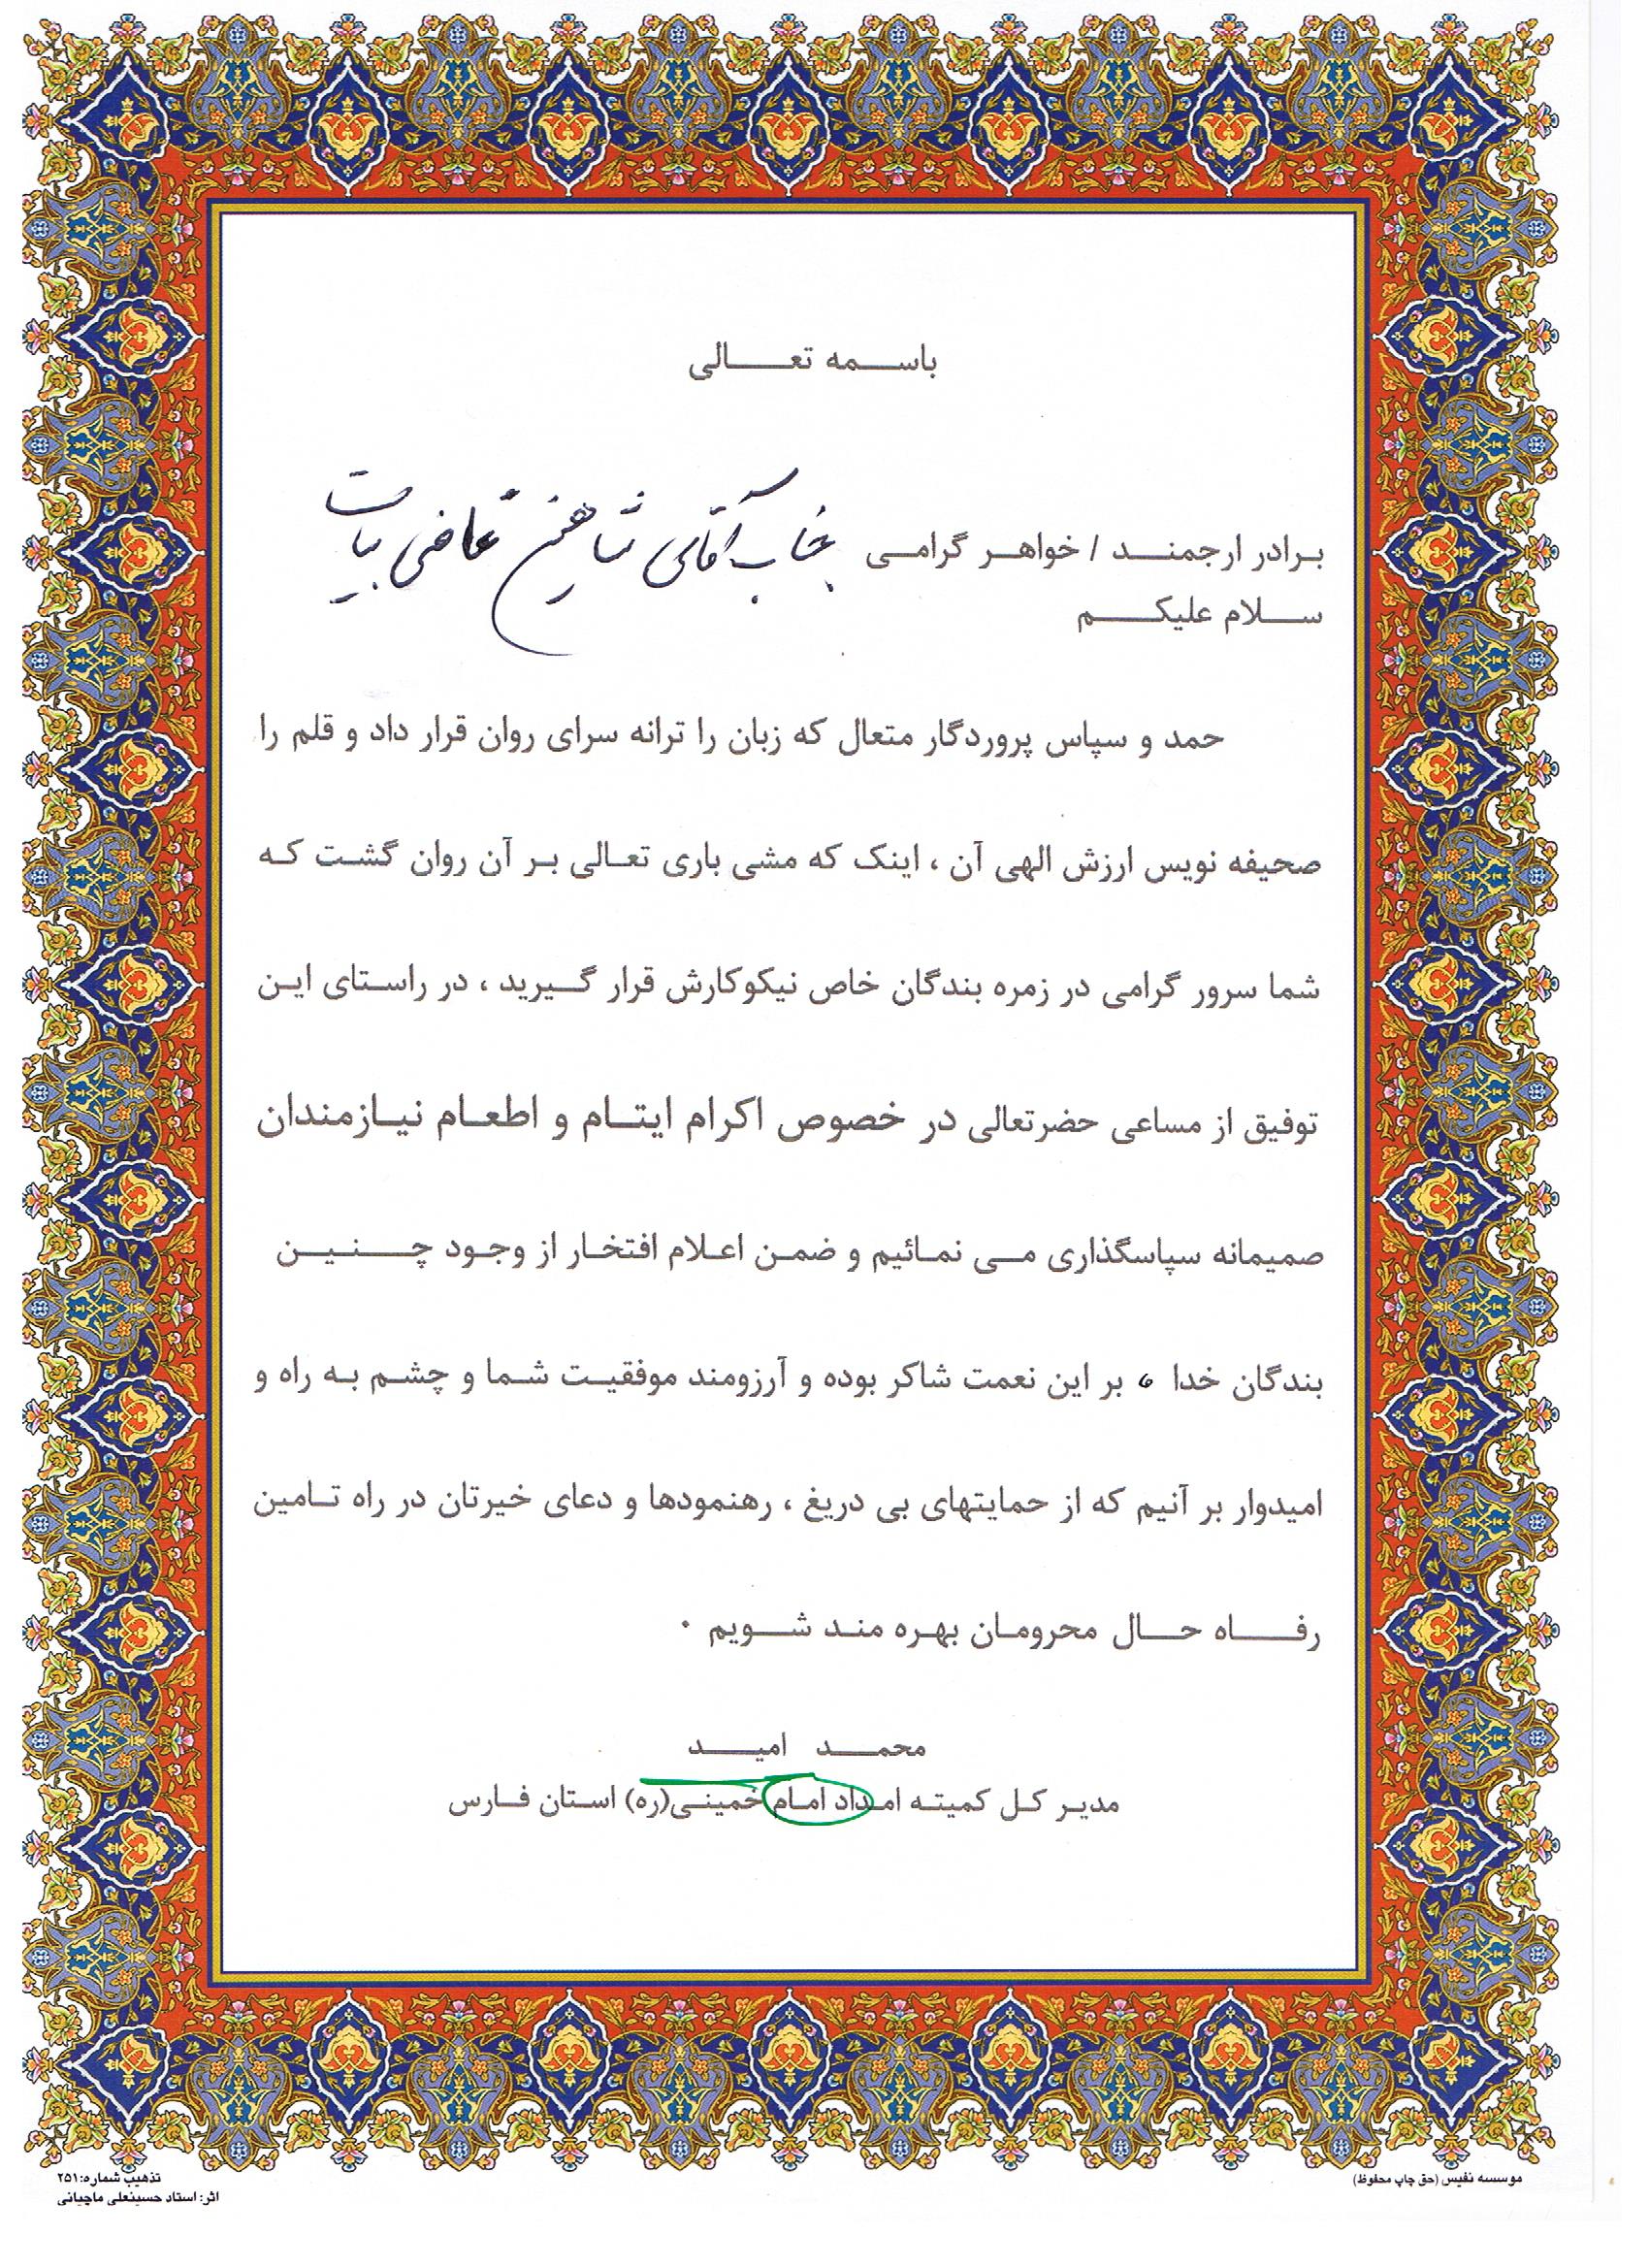 باسمه تعالی
برادر ارجمند / خواهر گرامی جناب آقای شاهین قاضی بیات
سلام علیکم
حمد و سپاس پروردگار متعال که زبان را ترانه سرای روان قرار داد و قلم را
صحیفه نویس ارزش الهی آن ، اینک که مشی باری تعالی بر آن روان گشت که
شما سرور گرامی در زمره بندگان خاص نیکوکارش قرار گیرید ، در راستای این
توفیق از مساعی حضرتعالی در خصوص اکرام ایتام و اطعام نیازمندان
صمیمانه سپاسگذاری می نمائیم و ضمن اعلام افتخار از وجود چنین
بندگان خدا ، بر این نعمت شاکر بوده و آرزومند موفقیت شما و چشم به راه و
امیدوار بر آنیم که از حمایتهای بی دریغ ، رهنمودها و دعای خیرتان در راه تامین
رفاه حال محرومان بهره مند شویم .
محمد امید
مدیر کل کمیته امداد امام خمینی(ره) استان فارس
موسسه نفیس (حق چاپ محفوظ)
تذهیب شماره: ۲۵۱
اثر: استاد حسینعلی ماچیانی